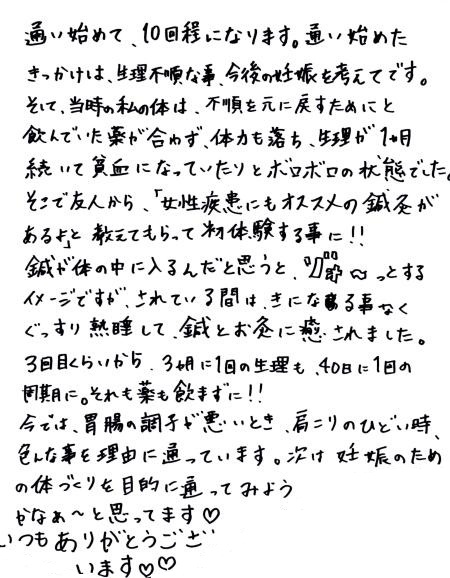 通い始めて、10回程になります。通い始めた
きっかけは、生理不順な事、今後の妊娠を考えてです。
そして、当時の私の体は、不順を元に戻すためにと
飲んでいた薬が合わず、体力も落ち、生理が1ヶ月
続いて貧血になっていたりとボロボロの状態でした。
そこで友人から、「女性疾患にもオススメの鍼灸が
あるよ」と教えてもらって初体験する事に!!
鍼が体の中に入るんだと思うと、ゾゾ〜っとする
イメージですが、されている間は、きになる事なく
ぐっすり熟睡して、鍼とお灸に癒されました。
3回目くらいから、3ヶ月に1回の生理も、40日に1回の
周期に。それも薬も飲まずに!!
今では、胃腸の調子が悪いとき、肩こりのひどい時、
色んな事を理由に通っています。次は妊娠のため
の体づくりを目的に通ってみよう
かなぁ〜と思ってます♡
いつもありがとうござ
います♡♡